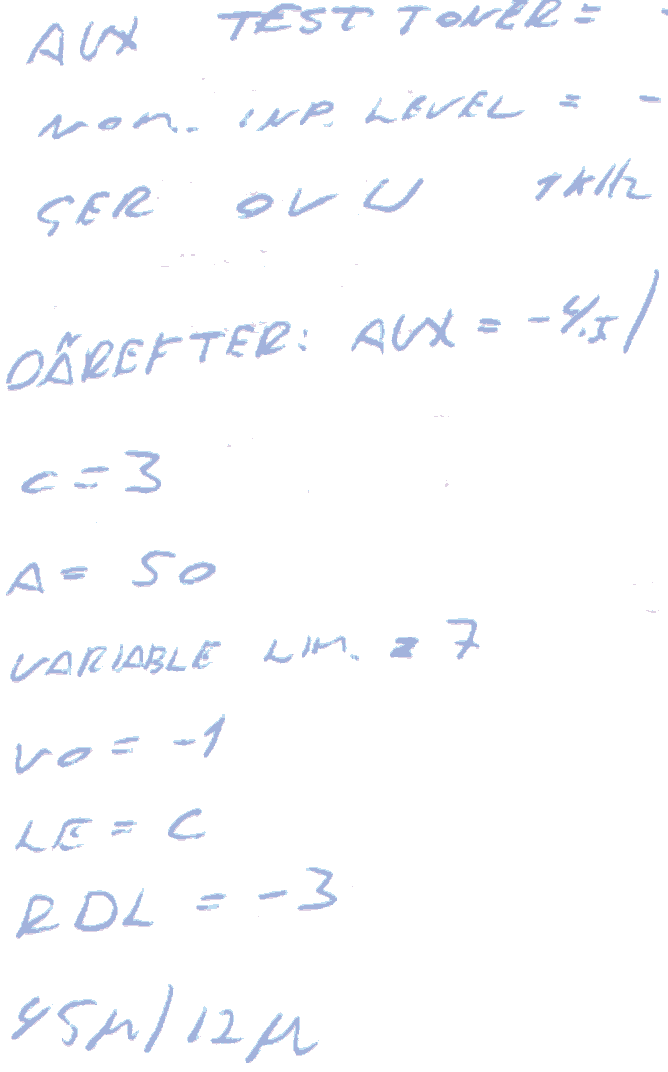 AUX TEST TONER = -
NOM. INP. LEVEL = -
GER OVU 1kHz
DÄREFTER: AUX = -4/.5 /
C = 3
A = 50
VARIABLE LIM. = 7
VO = -1
LE = C
RDL = -3
45µ / 12µ